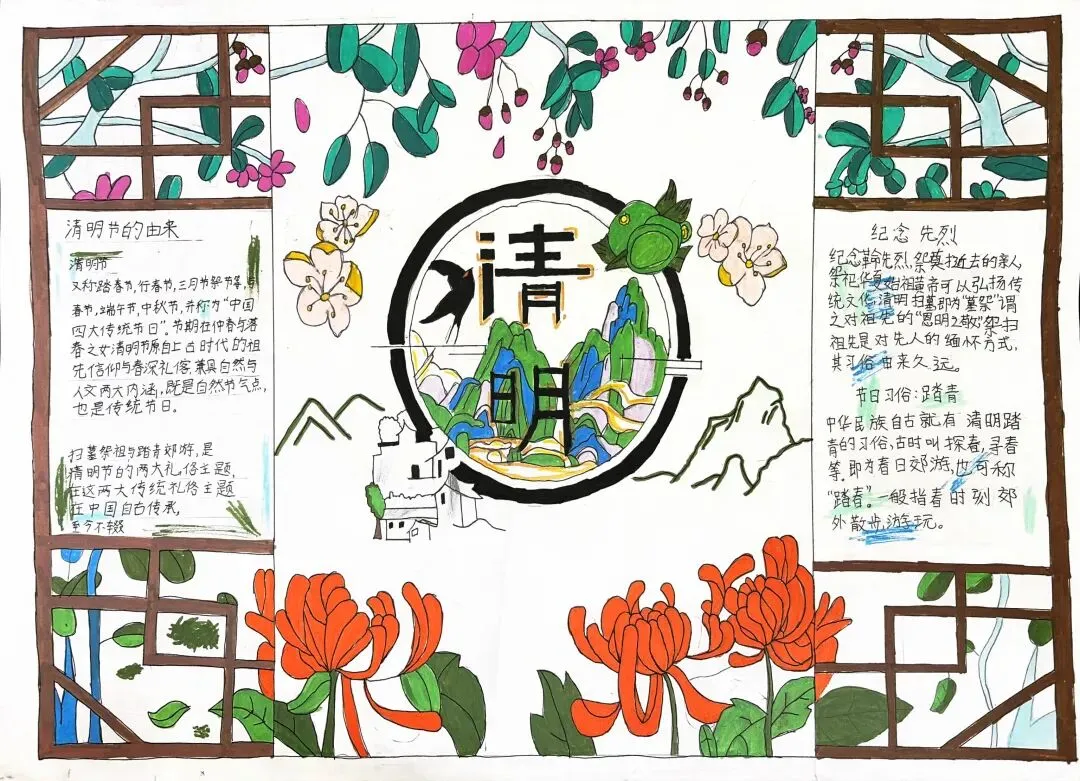 清明节的由来
清明节
又称踏春节,行春节,三月节祭节等,与
春节,端午节,中秋节,并称为“中国
四大传统节日”。节期在仲春与暮
春之交清明节源自上古时代的祖
先信仰与春深礼俗兼具自然与
人文两大内涵,既是自然节气点,
也是传统节日。
扫墓祭祖与踏青郊游,是
清明节的两大礼俗主题,
在这两大传统礼俗主题
在中国自古传承,
至今不辍
清
明
纪念 先烈
纪念革命先烈,祭奠过去的亲人,
祭祀华夏始祖黄帝可以弘扬传
统文化,清明扫墓即为“墓祭”谓
之对祖先的“思明之敬”祭扫
祖先是对先人的缅怀方式,
其习俗由来久远。
节日习俗:踏青
中华民族自古就有清明踏
青的习俗,古时叫探春,寻春
等,即为春日郊游,也可称
“踏春”。一般指春时刻郊
外散步,游玩。